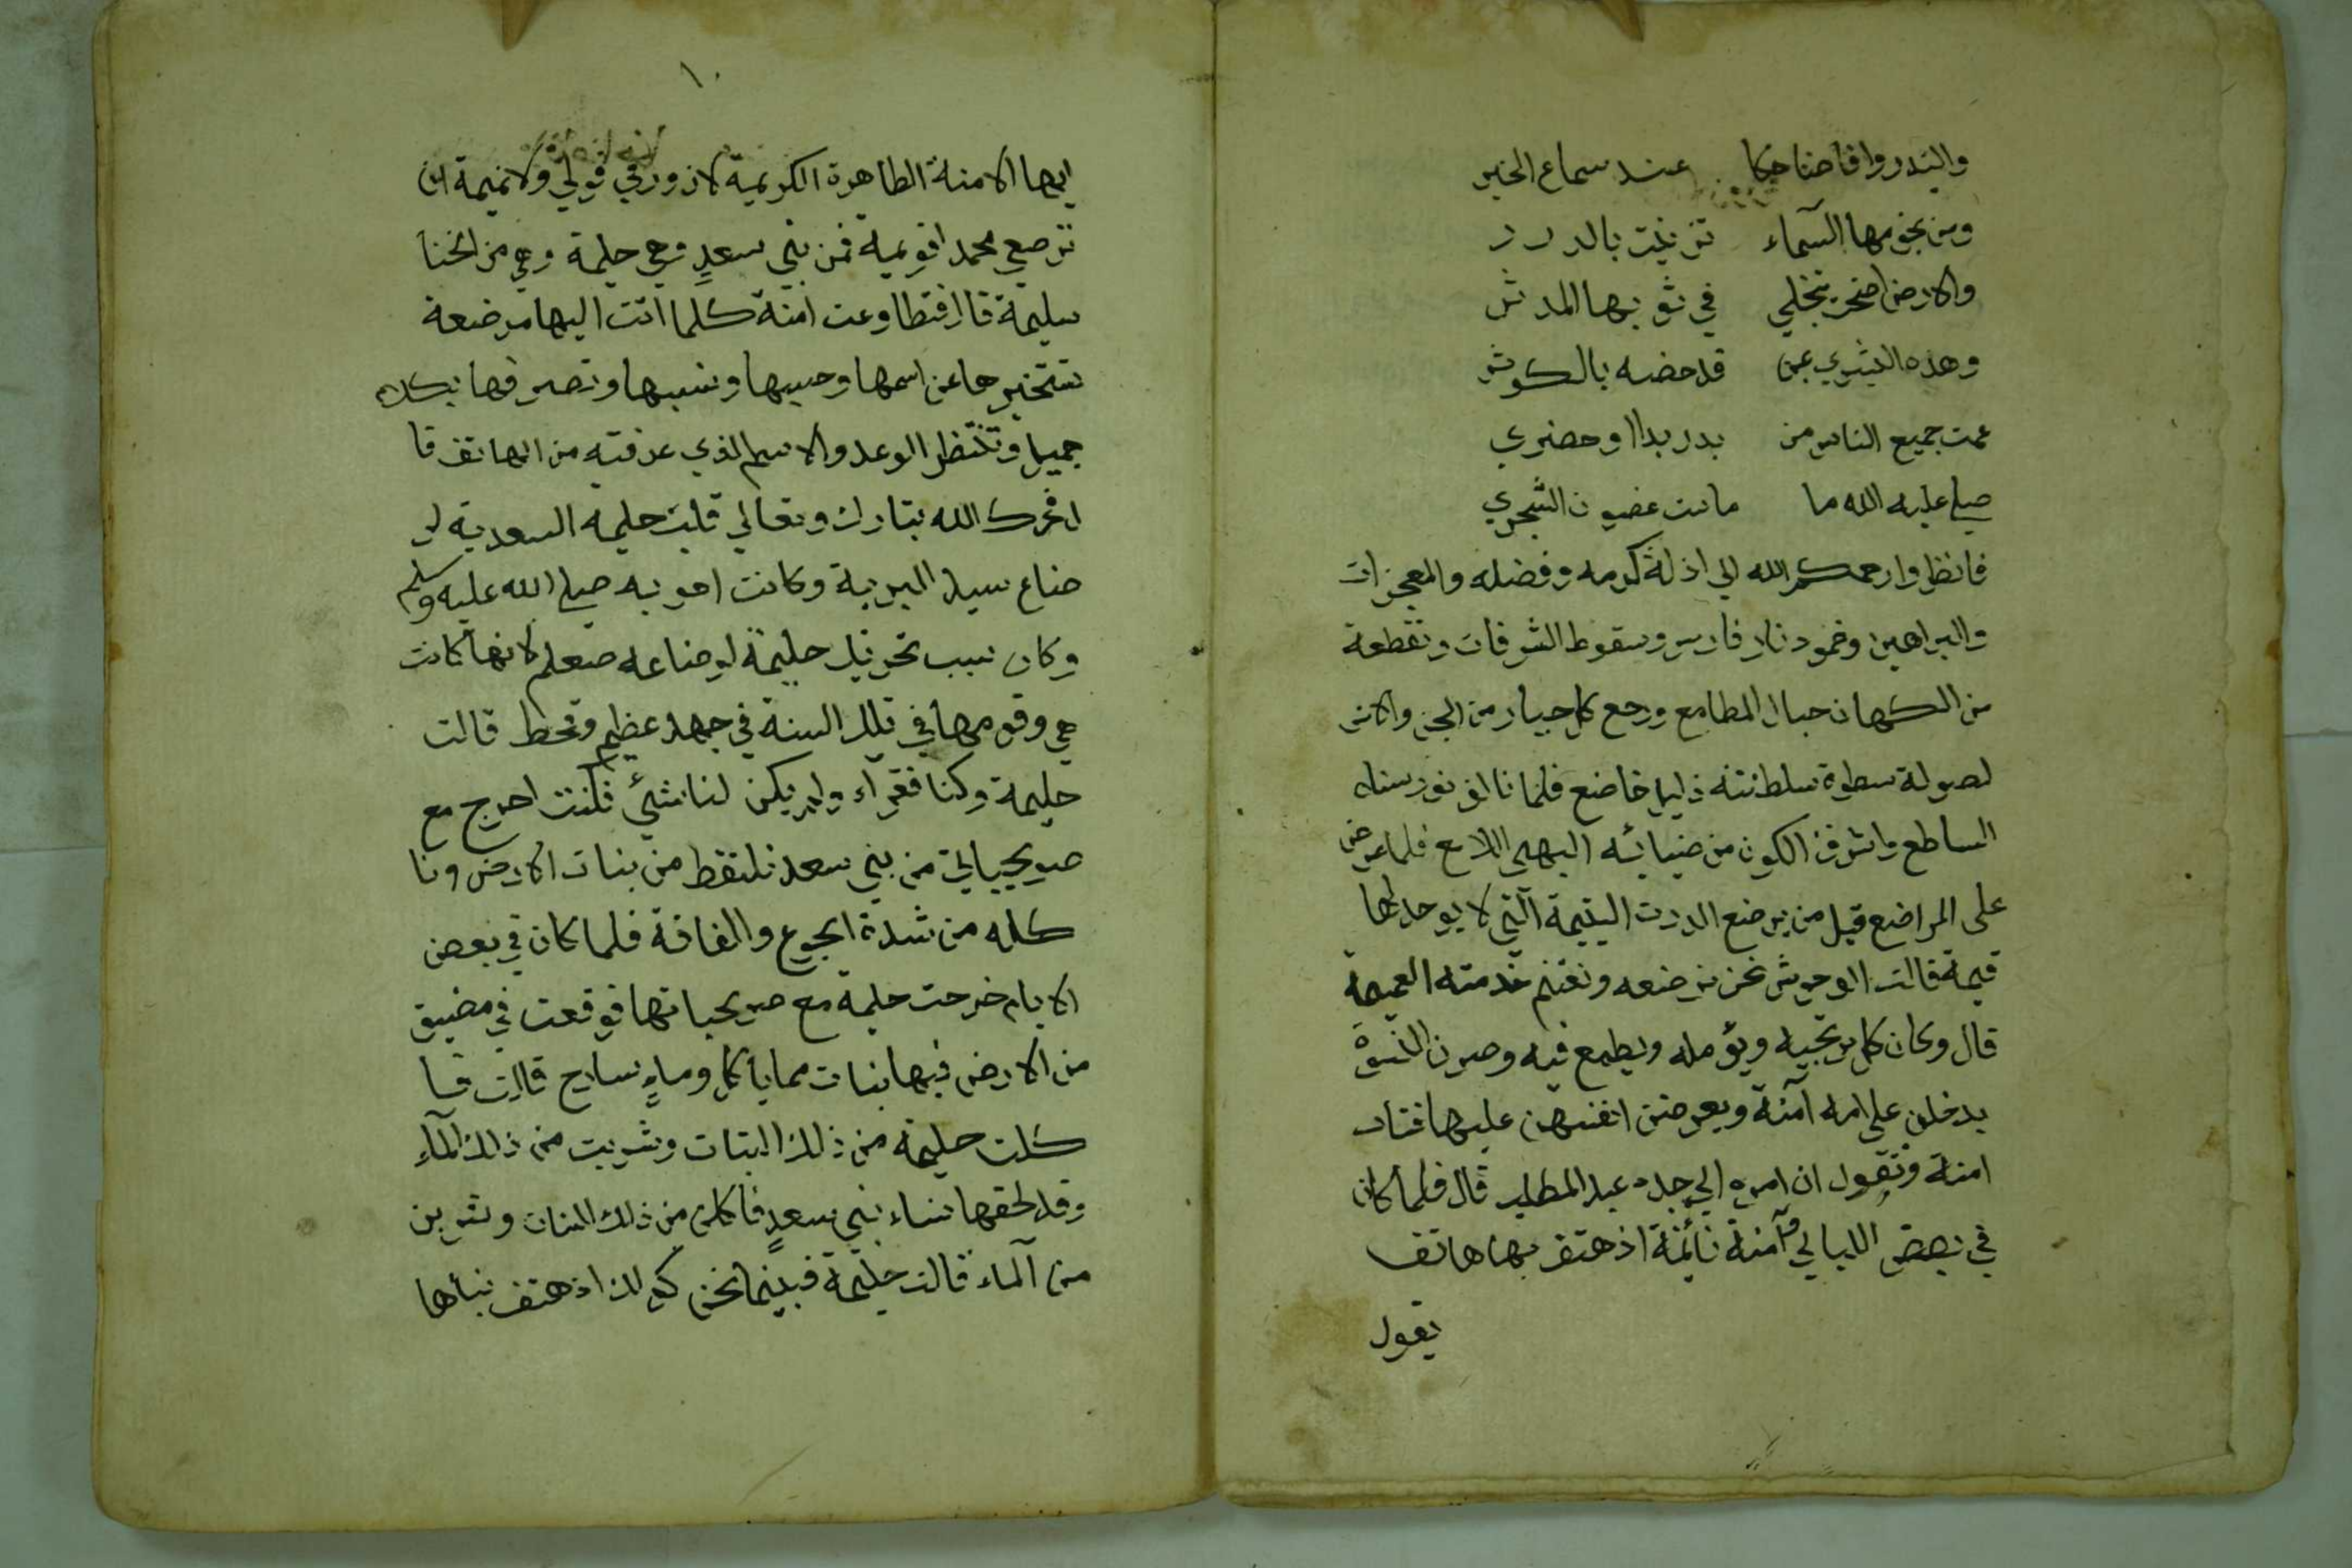 والبدر وافا ضاحكا عند سماع الخبر
ومن نجومها السماء تزينت بالدرر
والارض اضحت تنجلي في ثوبها المدثر
وهذه البشري بمن قد خصه بالكوثر
عمت جميع الناس من بدر بدا او حضري
صلي عليه الله ما مانت غصون الشجري
فانظروا رحمكم الله الي اذلة كرمه وفضله والمعجزات
والبراهين وخمود نار فارس وسقوط الشرفات وتقطعة
من الكهان حبال المطامع ورجع كل جبار من الجن والانس
لصولة سطوة سلطنته ذليل خاضع فلما تالق نور سناه
الساطع واشرق الكون من ضيائه البهي اللامع فلما عرض
على المراضع قيل من يرضع الدرت اليتيمة التي لا يوجد لها
قيمة قالت الوحوش نحن نرضعه ونغتنم خدمته العميمة
قال وكان كل يرتجيه ويؤمله ويطمع فيه وصرن النسوة
يدخلن على امه آمنة ويعرضن انفسهن عليها فتاب
امنة وتقول ان امره الي جده عبد المطلب قال فلما كان
في بعض الليالي وآمنة نائمة اذ هتف بها هاتف
يقول
١٠
ايها الامنة الطاهرة الكريمة لا زور في قولي ولا نميمة ان
ترضعي محمد اقويمة فمن بني سعدٍ وهي حليمة وهي من الخنا
سليمة قا ار فتطاوعت امنة كلما اتت اليها مرضعة
تستخبرها عن اسمها وحسبها ونسبها وتصرفها بكلام
جميل وتنتظر الوعد والاسم الذي عرفته من الهاتف قا
ل فحرك الله تبارك وتعالي قلب حليمة السعدية لر
ضاع سيد البرية وكانت احق به صلي الله عليه وسلم
وكان سبب تحريك حليمة لرضاعه صعلم لانها كانت
هي وقومها في تلك السنة في جهد عظيم وقحط قالت
حليمة وكنا فقراء ولم يكن لنا شئي فكنت اخرج مع
صويحباتي من بني سعد نلتقط من بنات الارض ونا
كله من شدة الجوع والفاقة فلما كان في بعض
الايام خرجت حليمة مع صويحباتها فوقعت في مضيق
من الارض فيها بنات مما ياكل وماءٍ سارح قالت فا
كلت حليمة من ذلك البنات وشربت من ذلك الماء
وقد لحقها نساء بني سعدٍ فاكلن من ذلك البنات وشربن
من الماء قالت حليمة فبينما نحن كذلك اذ هتف بناها